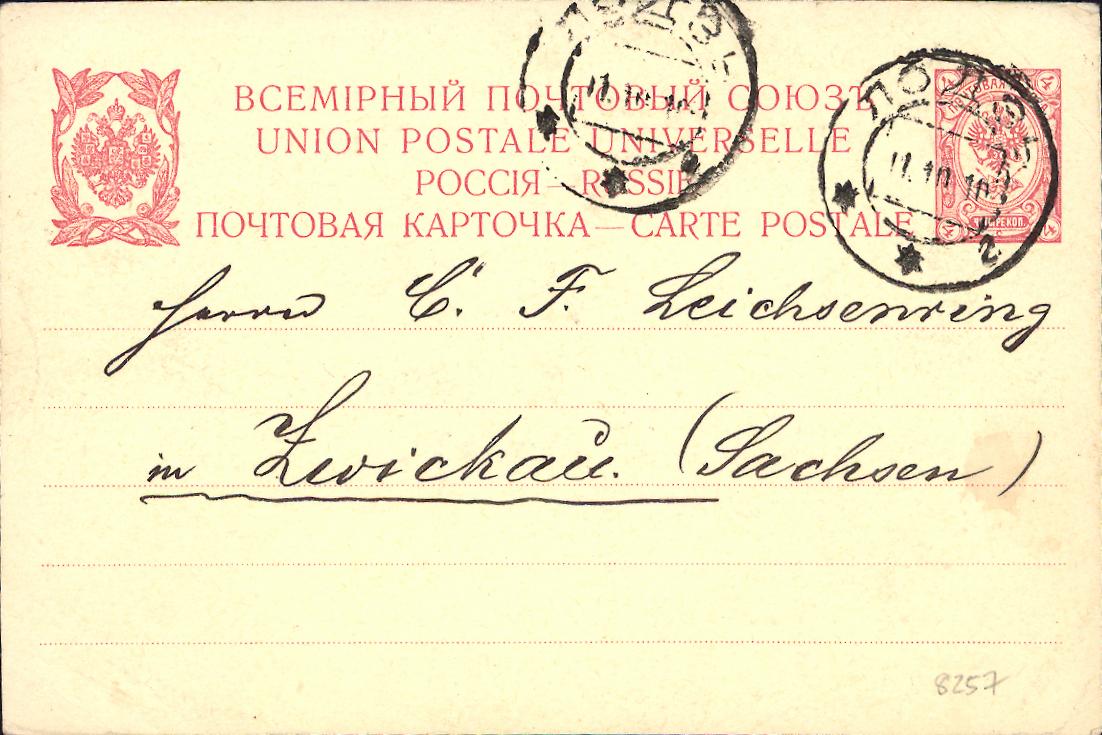 ВСЕМІРНЫЙ ПОЧТОВЫЙ СОЮЗЪ
UNION POSTALE UNIVERSELLE
РОССІЯ—RUSSIE
ПОЧТОВАЯ КАРТОЧКА—CARTE POSTALE
ЛОДЗЬ
11.10.10
ЛОДЗЬ
11.10.10
2
4 4
4 4
Herrn C. F. Leichsenring
in Zwickau. (Sachsen)
8257